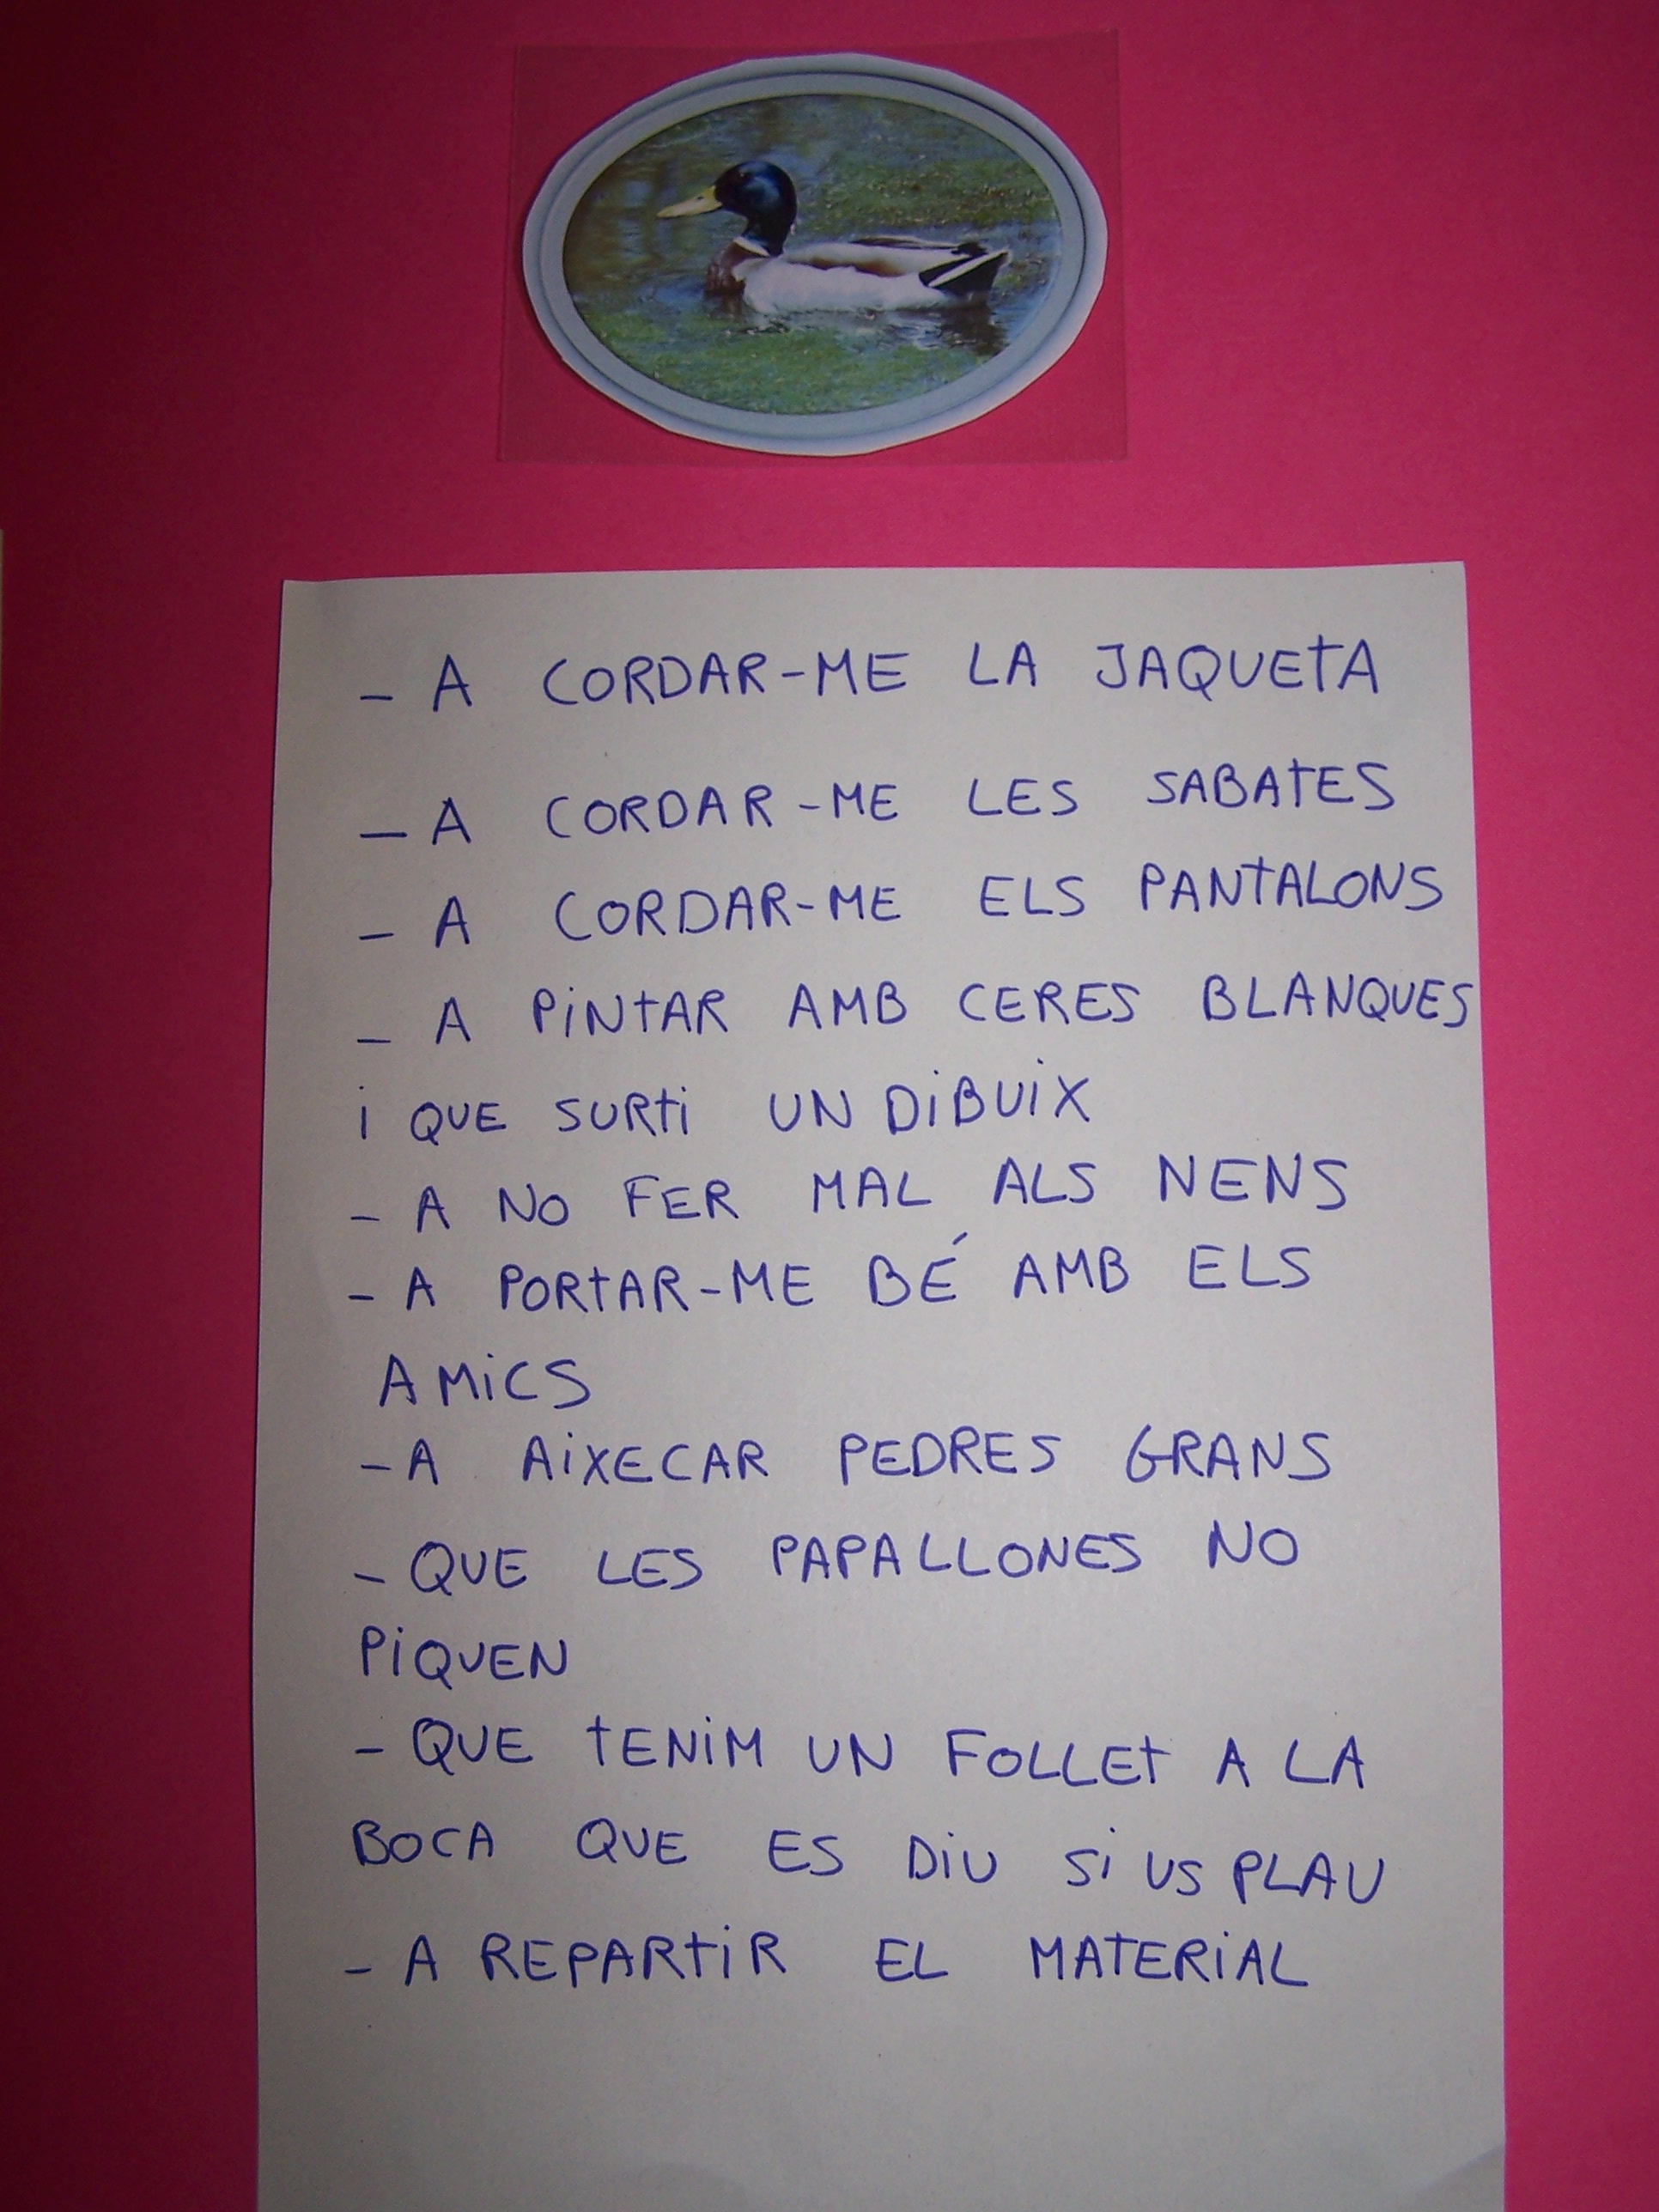 - A CORDAR-ME LA JAQUETA
- A CORDAR-ME LES SABATES
- A CORDAR-ME ELS PANTALONS
- A PiNTAR AMB CERES BLANQUES
i QUE SURTi UN DiBUiX
- A NO FER MAL ALS NENS
- A PORTAR-ME BÉ AMB ELS
AMiCS
- A AiXECAR PEDRES GRANS
- QUE LES PAPALLONES NO
PiQUEN
- QUE TENiM UN FOLLET A LA
BOCA QUE ES DiU Si US PLAU
- A REPARTiR EL MATERiAL